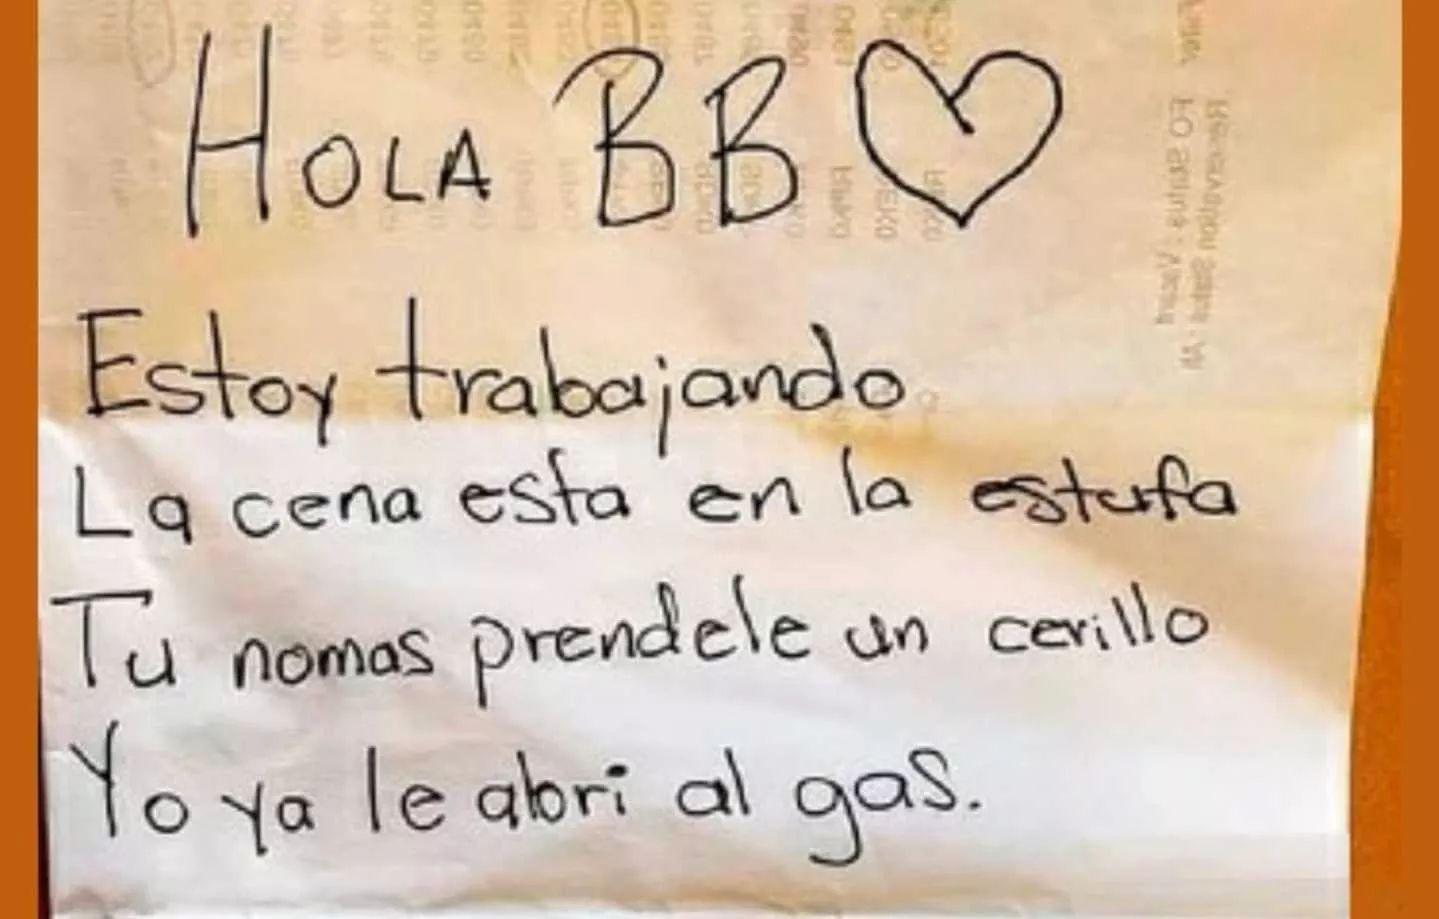 HOLA BB
Estoy trabajando
La cena esta en la estufa
Tu nomas prendele un cerillo
Yo ya le abri al gas.